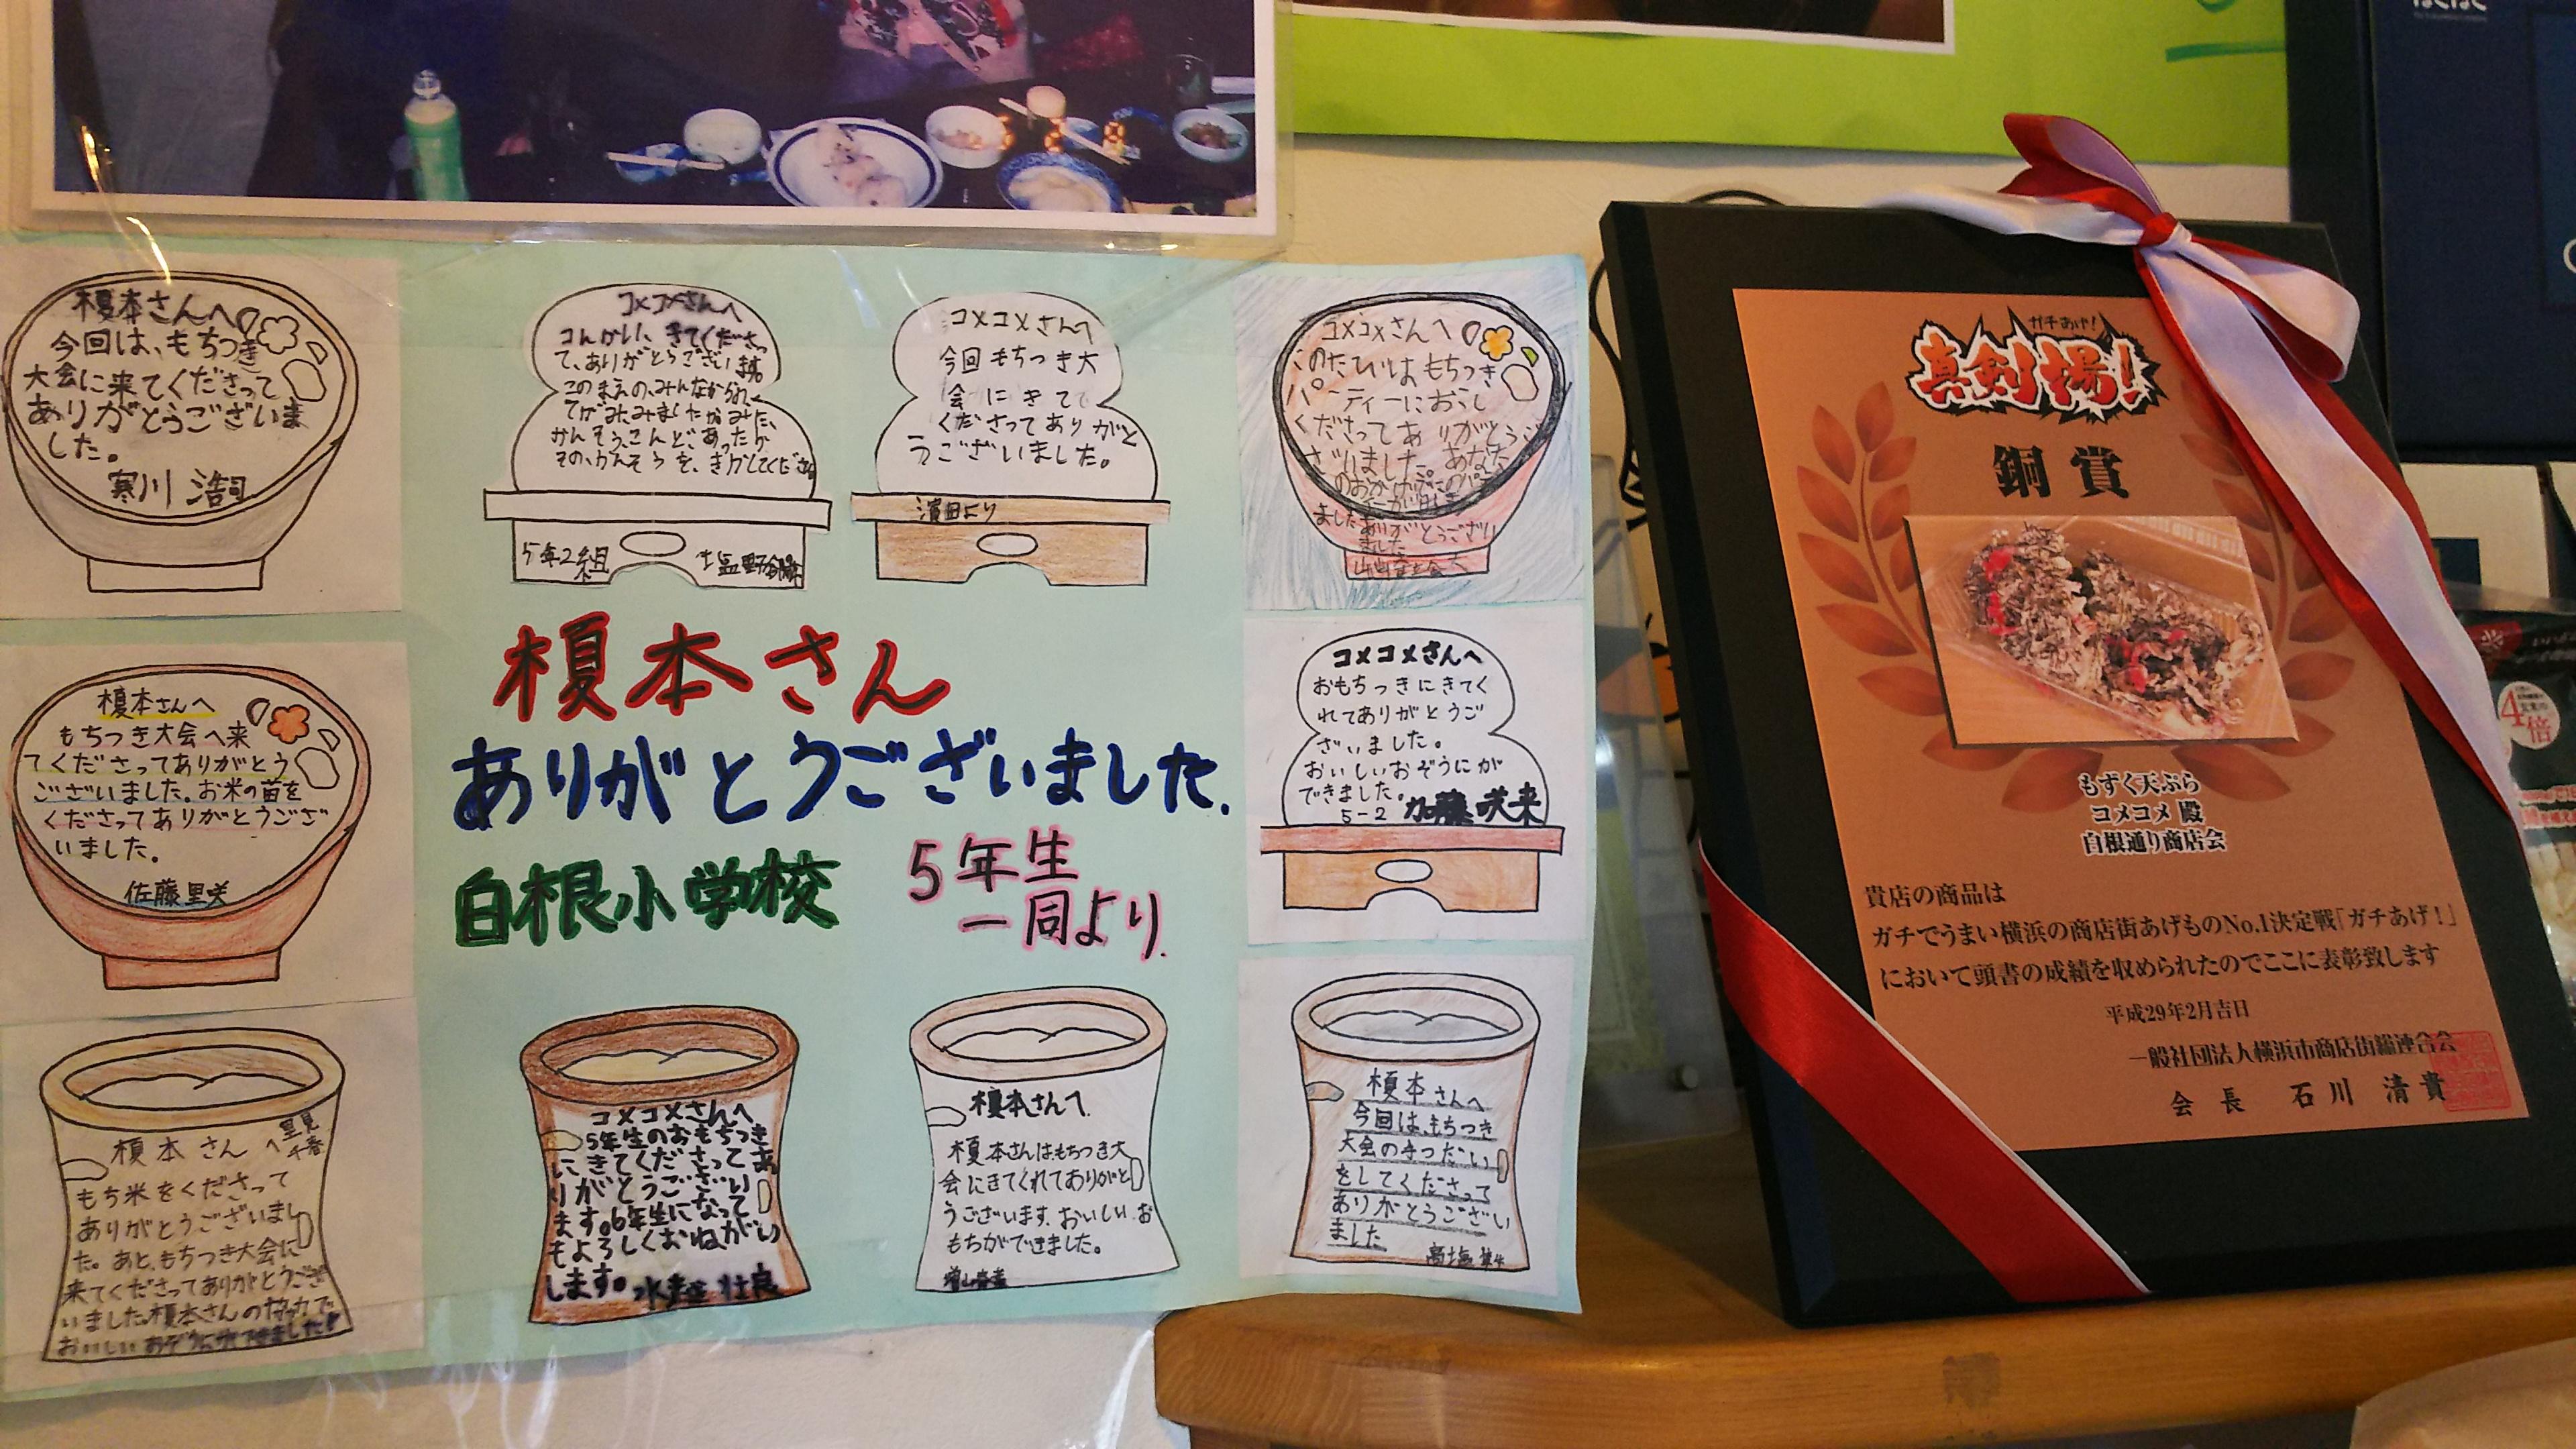 榎本さんへ
今回は、もちつき
大会に来てくださって
ありがとうございま
した。
寒川 浩司
コメコメさんへ
こんかい、きてくださっ
て、ありがとうございます
このまえの、みんなからの
てがみみましたか みた、
かんそうさんど、あったか
その、かんそうを、きかしてくださ
5年2組
コメコメさんへ
今回もちつき大
会にきて
くださってありがと
うございました。
濱田より
コメコメさんへ
このたびはもちつき
パーティーにおこし
くださってありがとうご
ざいました。あなた
のおかげで
ましたありがとうござい
ました
榎本さん
ありがとうございました.
白根小学校
5年生
一同より.
榎本さんへ
もちつき大会へ来
てくださってありがとう
ございました。お米の苗を
くださってありがとうござ
いました。
佐藤里咲
コメコメさんへ
おもちつきにきてく
れてありがとうご
ざいました。
おいしいおぞうにが
できました。
5-2 加藤咲来
榎本さんへ
里見
千春
もち米をくださって
ありがとうございまし
た。あと、もちつき大会に
来てくださってありがとうござ
いました榎本さんの協力で
おいしいおぞうにができました!
コメコメさんへ
5年生のおもちつき
にきてくださってあ
りがとうござい
ます。6年生になって
もよろしくおねがい
します。
榎本さんへ.
榎本さんはもちつき大
会にきてくれてありがと
うございます.おいしいお
もちができました。
榎本さんへ
今回は、もちつき
大会の手つだい
をしてくださって
ありがとうござい
ました
ガチあげ!
真剣揚!
銅賞
もずく天ぷら
コメコメ 殿
白根通り商店会
貴店の商品は
ガチでうまい横浜の商店街あげものNo.1決定戦「ガチあげ!」
において頭書の成績を収められたのでここに表彰致します
平成29年2月吉日
一般社団法人横浜市商店街総連合会
会長 石川 清貴
4倍